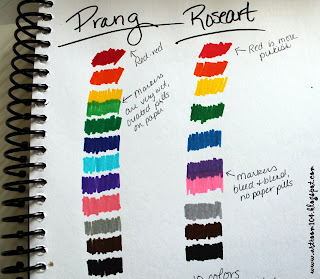 Prang
Roseart
Red-red
Red is more
precise
Markers
are very wet,
created pills
on paper
Markers
bleed + blend,
no paper pills
colors
www.artroom104.blogspot.com